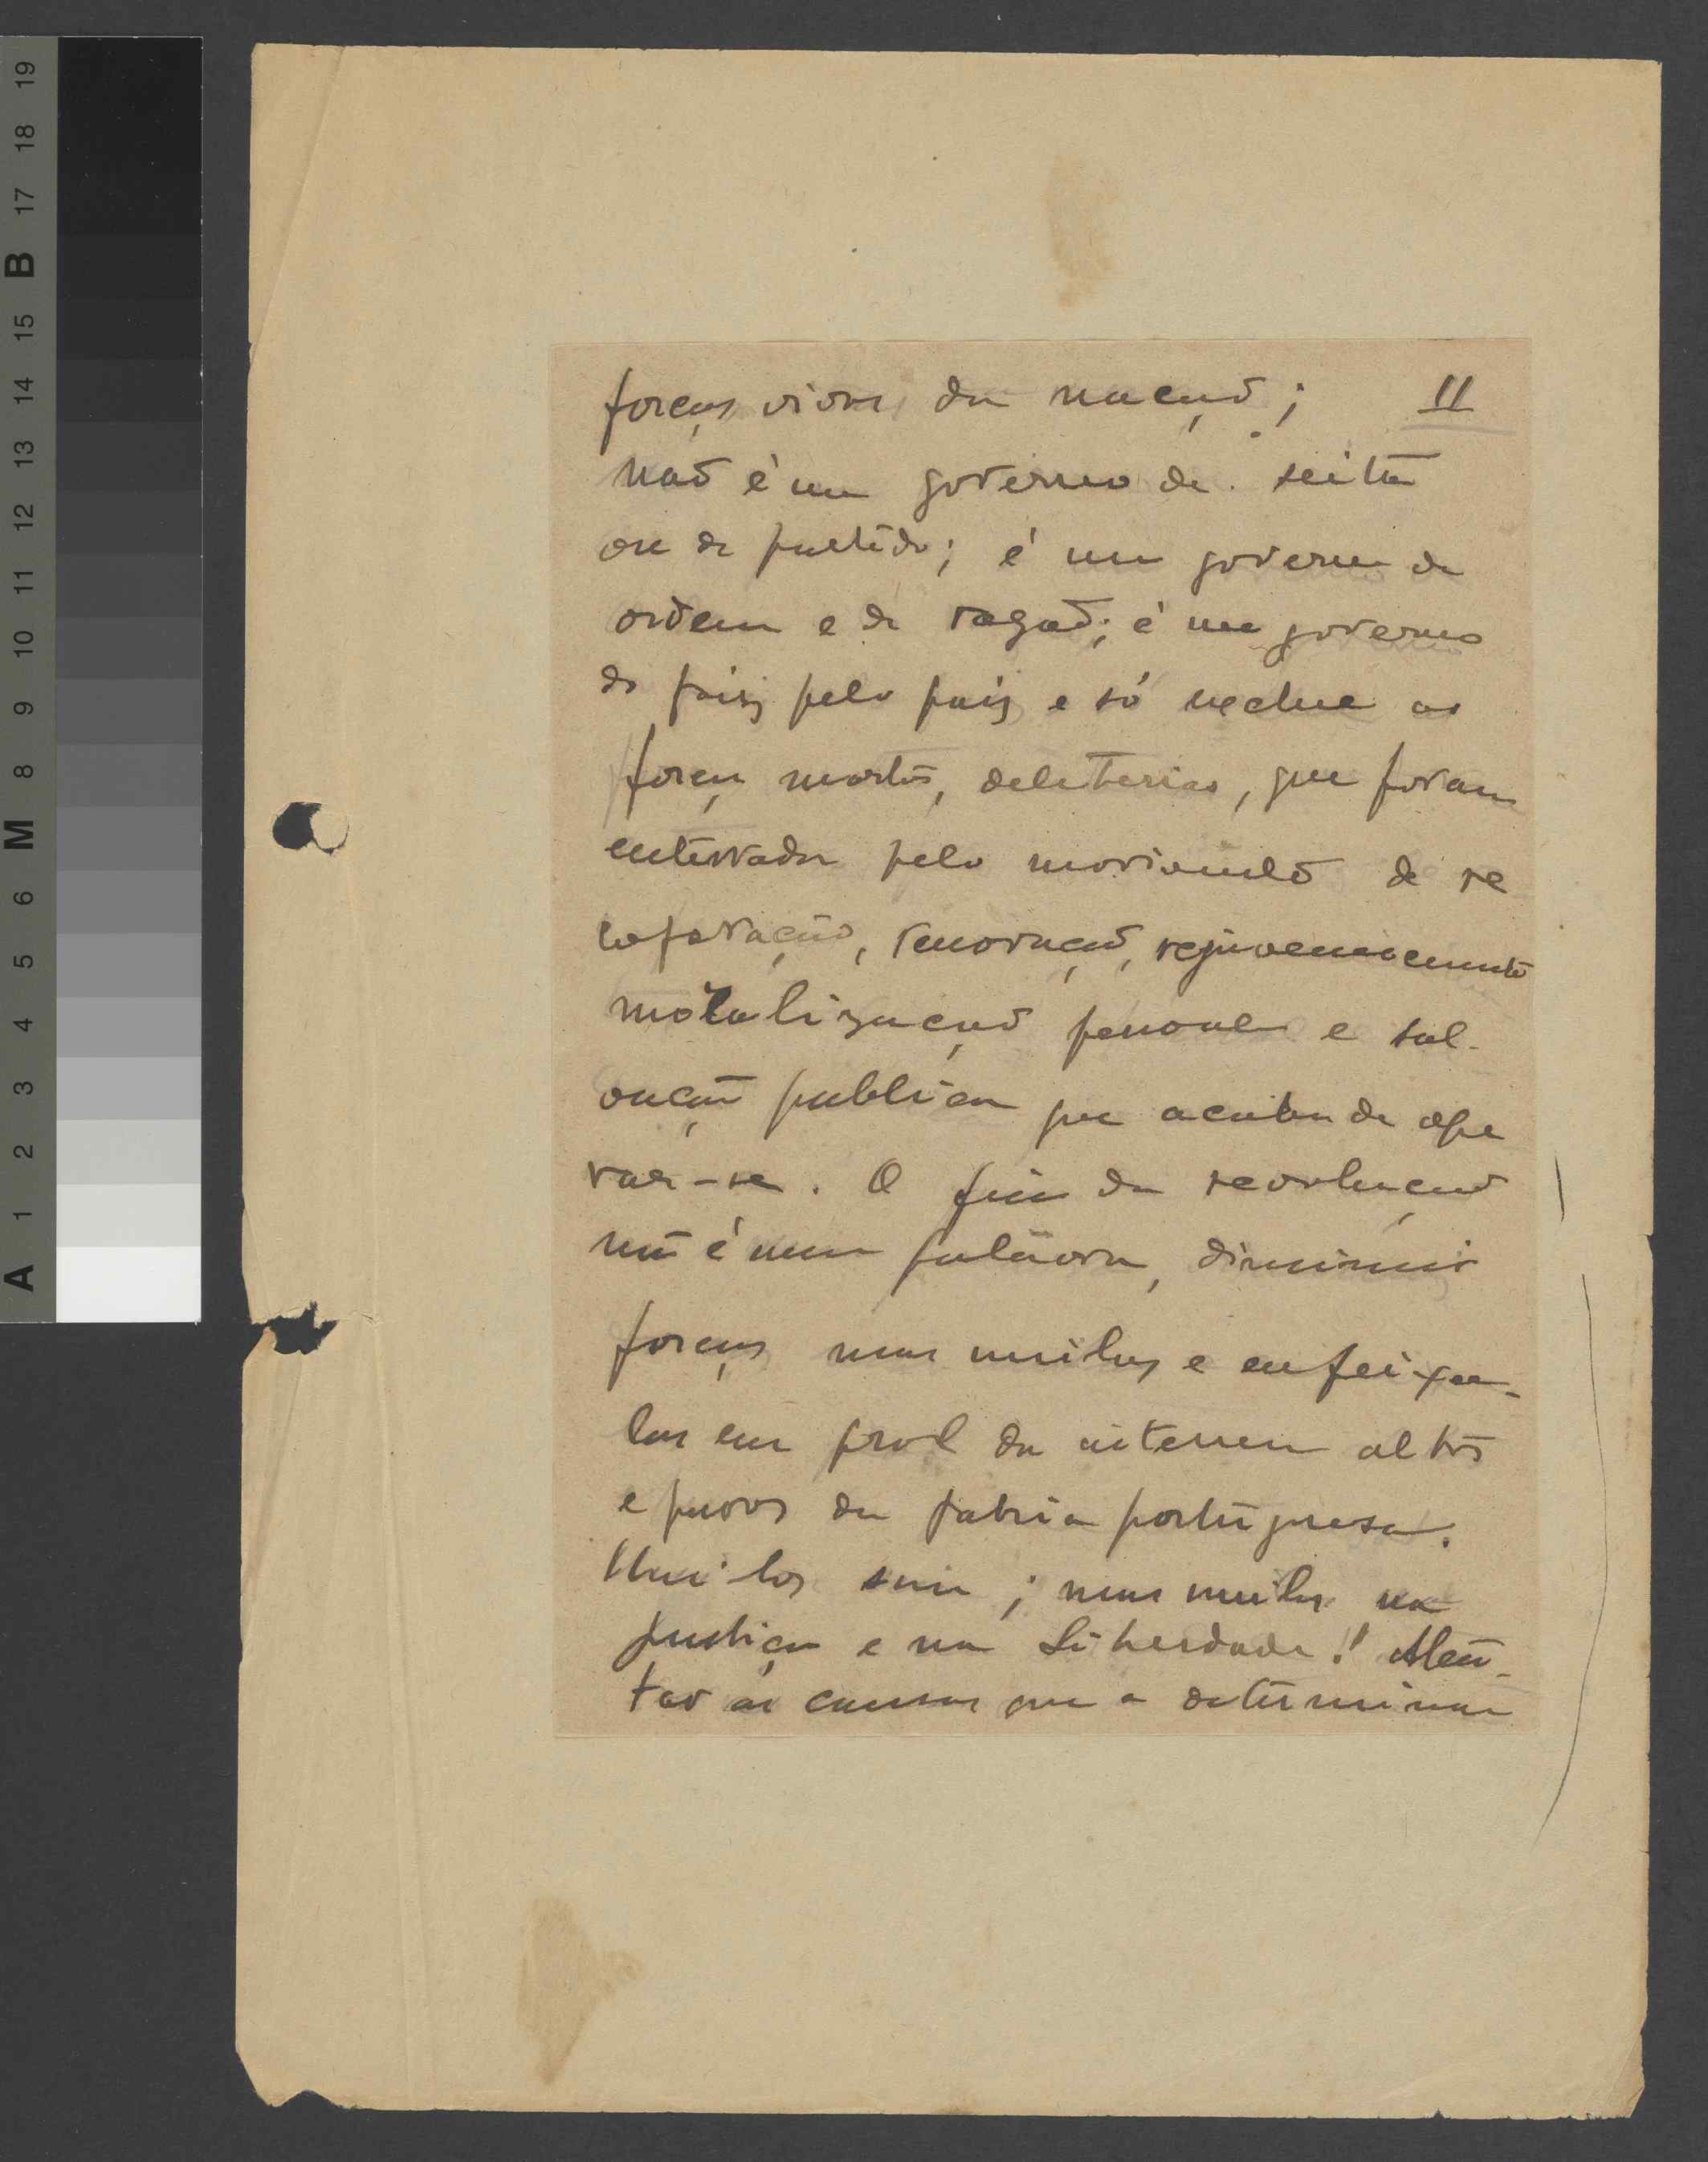 forças vivas da nação; 11
Não é um governo de seita
ou de partido; é um governo de
ordem e de razão; é um governo
do paiz pelo paiz e só exclue as
forças mortas, deleterias, que foram
enterradas pelo movimento de re
renovação, rejuvenescimento
moralização pessoal e sal-
vação publica que acaba de ope
rar-se. O fim da revolução
não é numa palavra, diminuir
forças mas unilas e enfeixa-
las em prol dos interesses altos
e puros da patria portuguesa.
Unilos sim; mas unilos na
justiça e na Liberdade! Aten-
tar as causas que a determinam
A 1 2 3 4 5 6 M 8 9 10 11 12 13 14 15 B 17 18 19